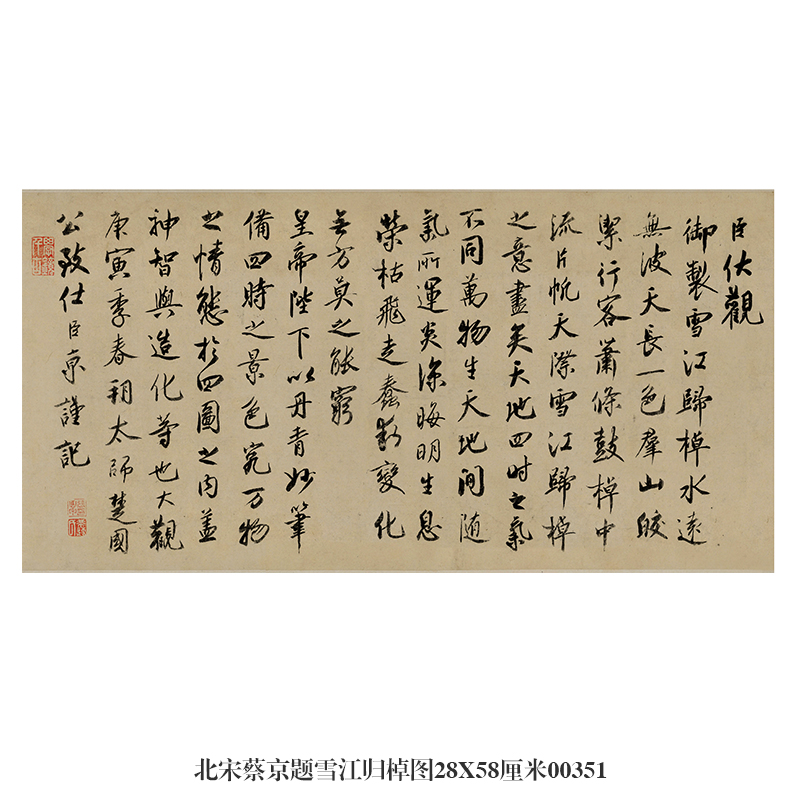 臣伏觀
御製雪江歸棹水遠
無波天長一色羣山皎
潔行客蕭條鼓棹中
流片帆天際雪江歸棹
之意盡矣天地四時之氣
不同萬物生天地間隨
氣所運炎凉晦明生息
榮枯飛走蠢動變化
無方莫之能窮
皇帝陛下以丹青妙筆
備四時之景色究万物
之情態於四圖之内蓋
神智與造化等也大觀
庚寅季春朔太師楚國
公致仕臣京謹記
北宋蔡京题雪江归棹图28X58厘米00351